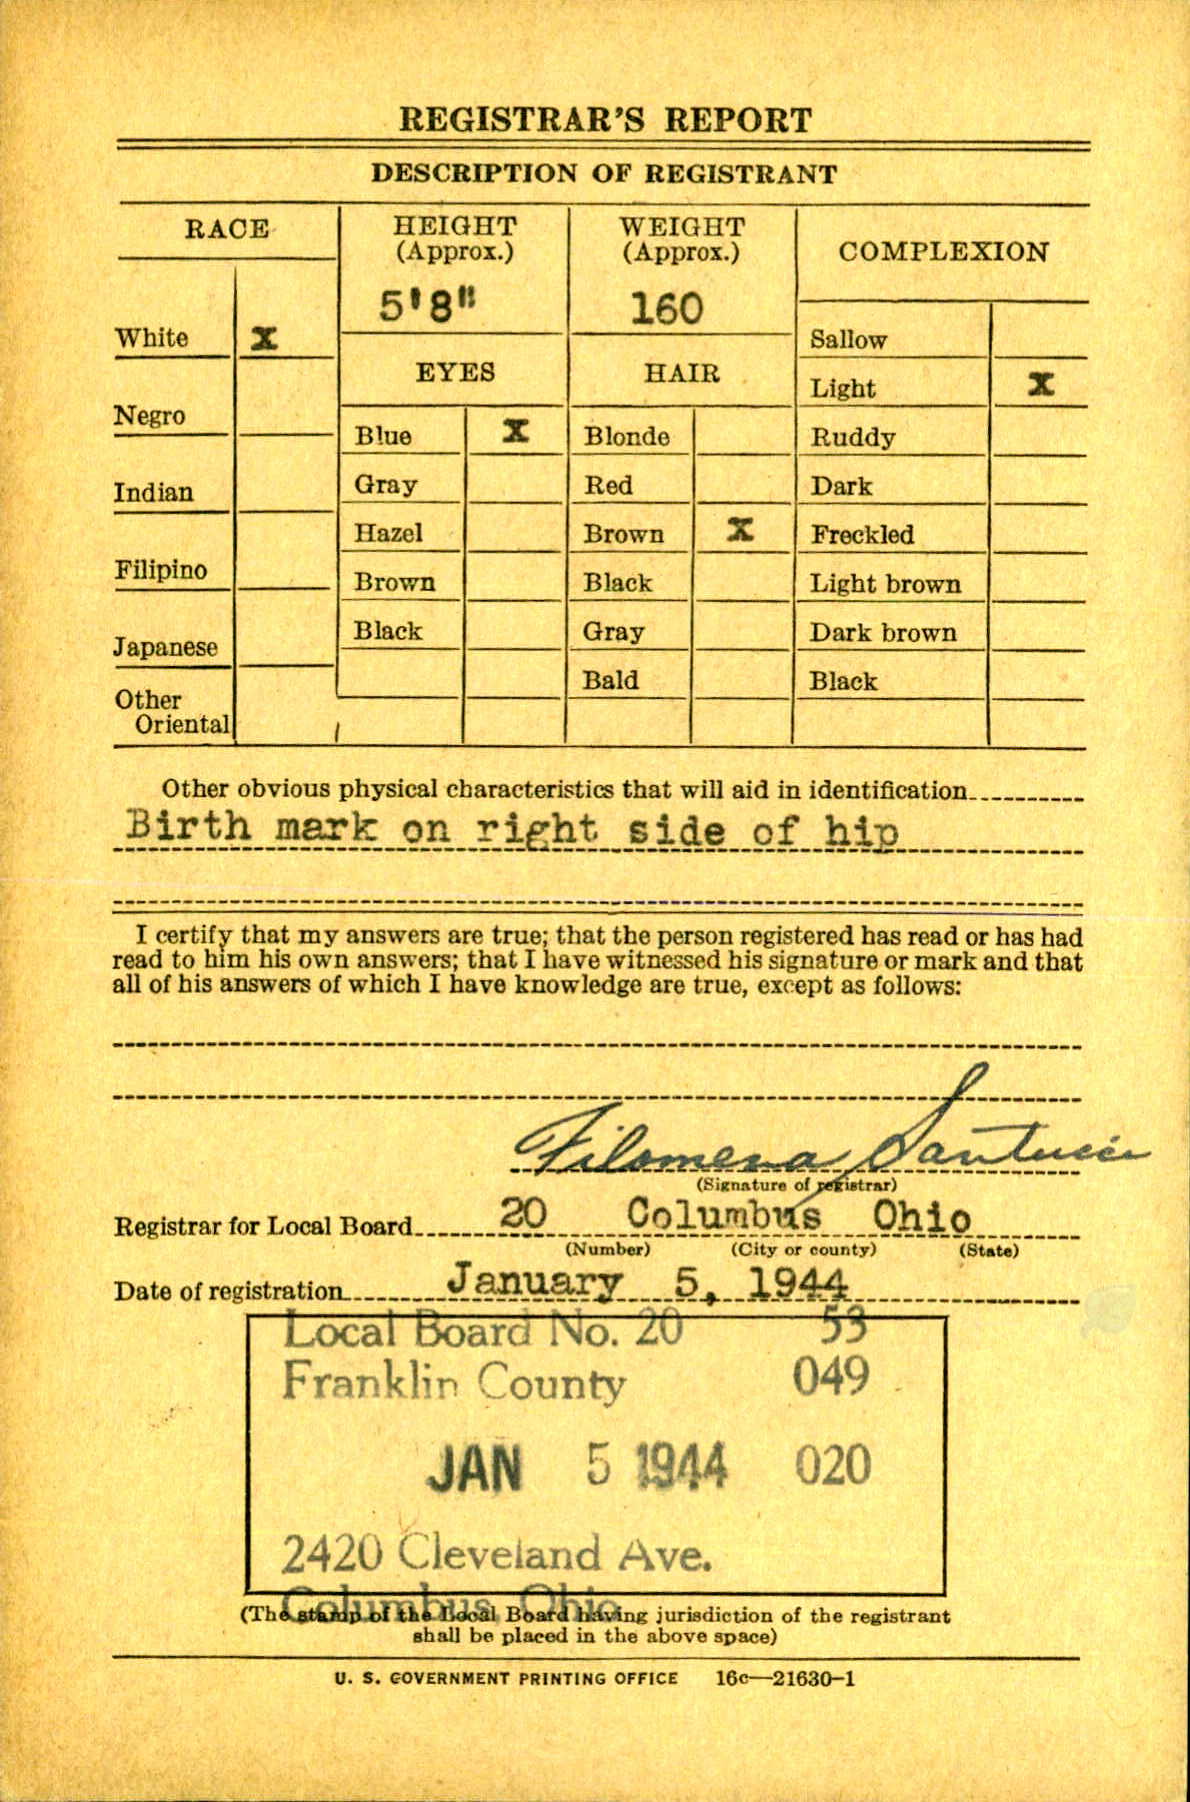 REGISTRAR'S REPORT
DESCRIPTION OF REGISTRANT
RACE
HEIGHT
(Approx.)
5'8"
WEIGHT
(Approx.)
160
COMPLEXION
White X
Negro
Indian
Filipino
Japanese
Other
Oriental
EYES
Blue X
Gray
Hazel
Brown
Black
HAIR
Blonde
Red
Brown X
Black
Gray
Bald
Sallow
Light X
Ruddy
Dark
Freckled
Light brown
Dark brown
Black
Other obvious physical characteristics that will aid in identification
Birth mark on right side of hip
I certify that my answers are true; that the person registered has read or has had
read to him his own answers; that I have witnessed his signature or mark and that
all of his answers of which I have knowledge are true, except as follows:
Filomena Santucci
(Signature of registrar)
Registrar for Local Board 20 Columbus Ohio
(Number) (City or county) (State)
Date of registration January 5, 1944
Local Board No. 20 53
Franklin County 049
JAN 5 1944 020
2420 Cleveland Ave.
Columbus, Ohio
(The stamp of the Local Board having jurisdiction of the registrant
shall be placed in the above space)
U. S. GOVERNMENT PRINTING OFFICE 16c—21630-1